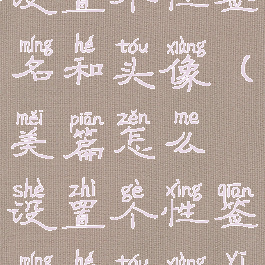 设置个性签
míng hé tóu xiàng
名和头像（
měi piān zěn me
美篇怎么
shè zhì gè xìng qiān
设置个性签
míng hé tóu xiàng yǐ